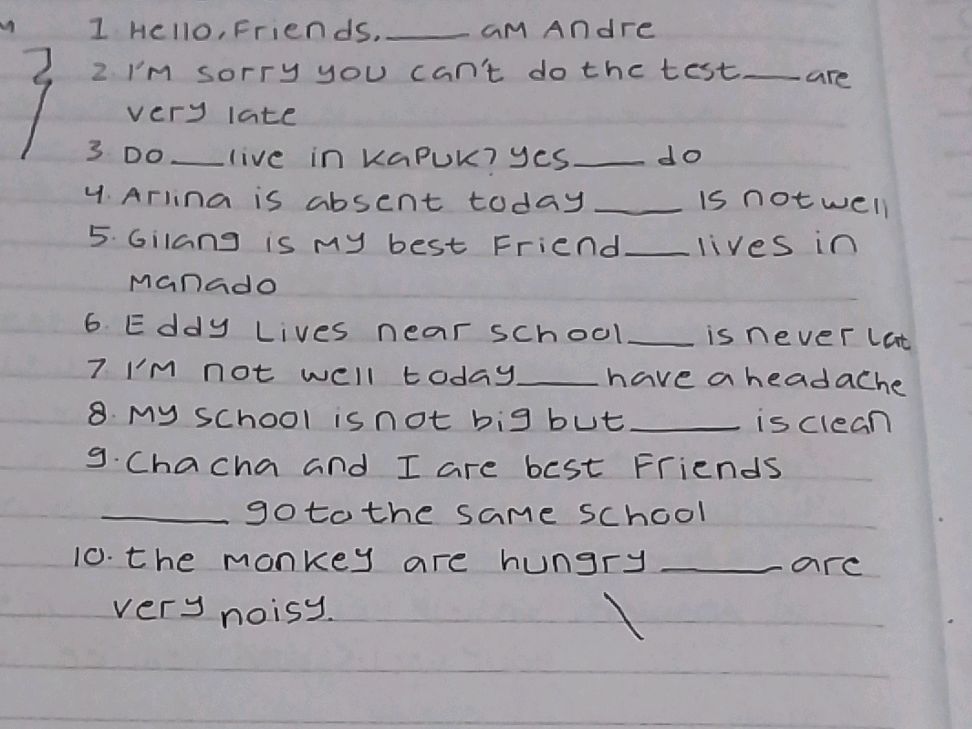 1. Hello, Friends, ____ am Andre
2. I'm sorry you can't do the test ____ are
very late
3. Do ____ live in Kapuk? yes ____ do
4. Arlina is absent today ____ is not well
5. Gilang is my best Friend ____ lives in
Manado
6. Eddy Lives near school ____ is never Lat
7. I'm not well today ____ have a headache
8. My school is not big but ____ is clean
9. Cha cha and I are best Friends
____ go to the same school
10. the monkey are hungry ____ are
very noisy.